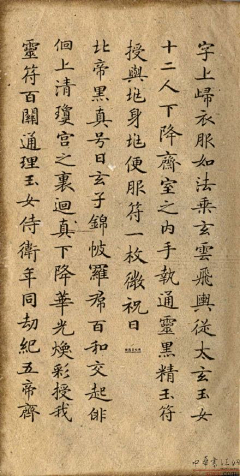 字上皈衣服如法乘玄雲飛輿從太玄玉女
十二人下降齋室之内手執通靈黑精玉符
授與某身某便服符一枚微祝曰
北帝黑真号曰玄子錦帔羅帬百和交起俳
佪上清瓊宫之裏迴真下降華光煥彩授我
靈符百關通理玉女侍衛年同劫紀五帝齊